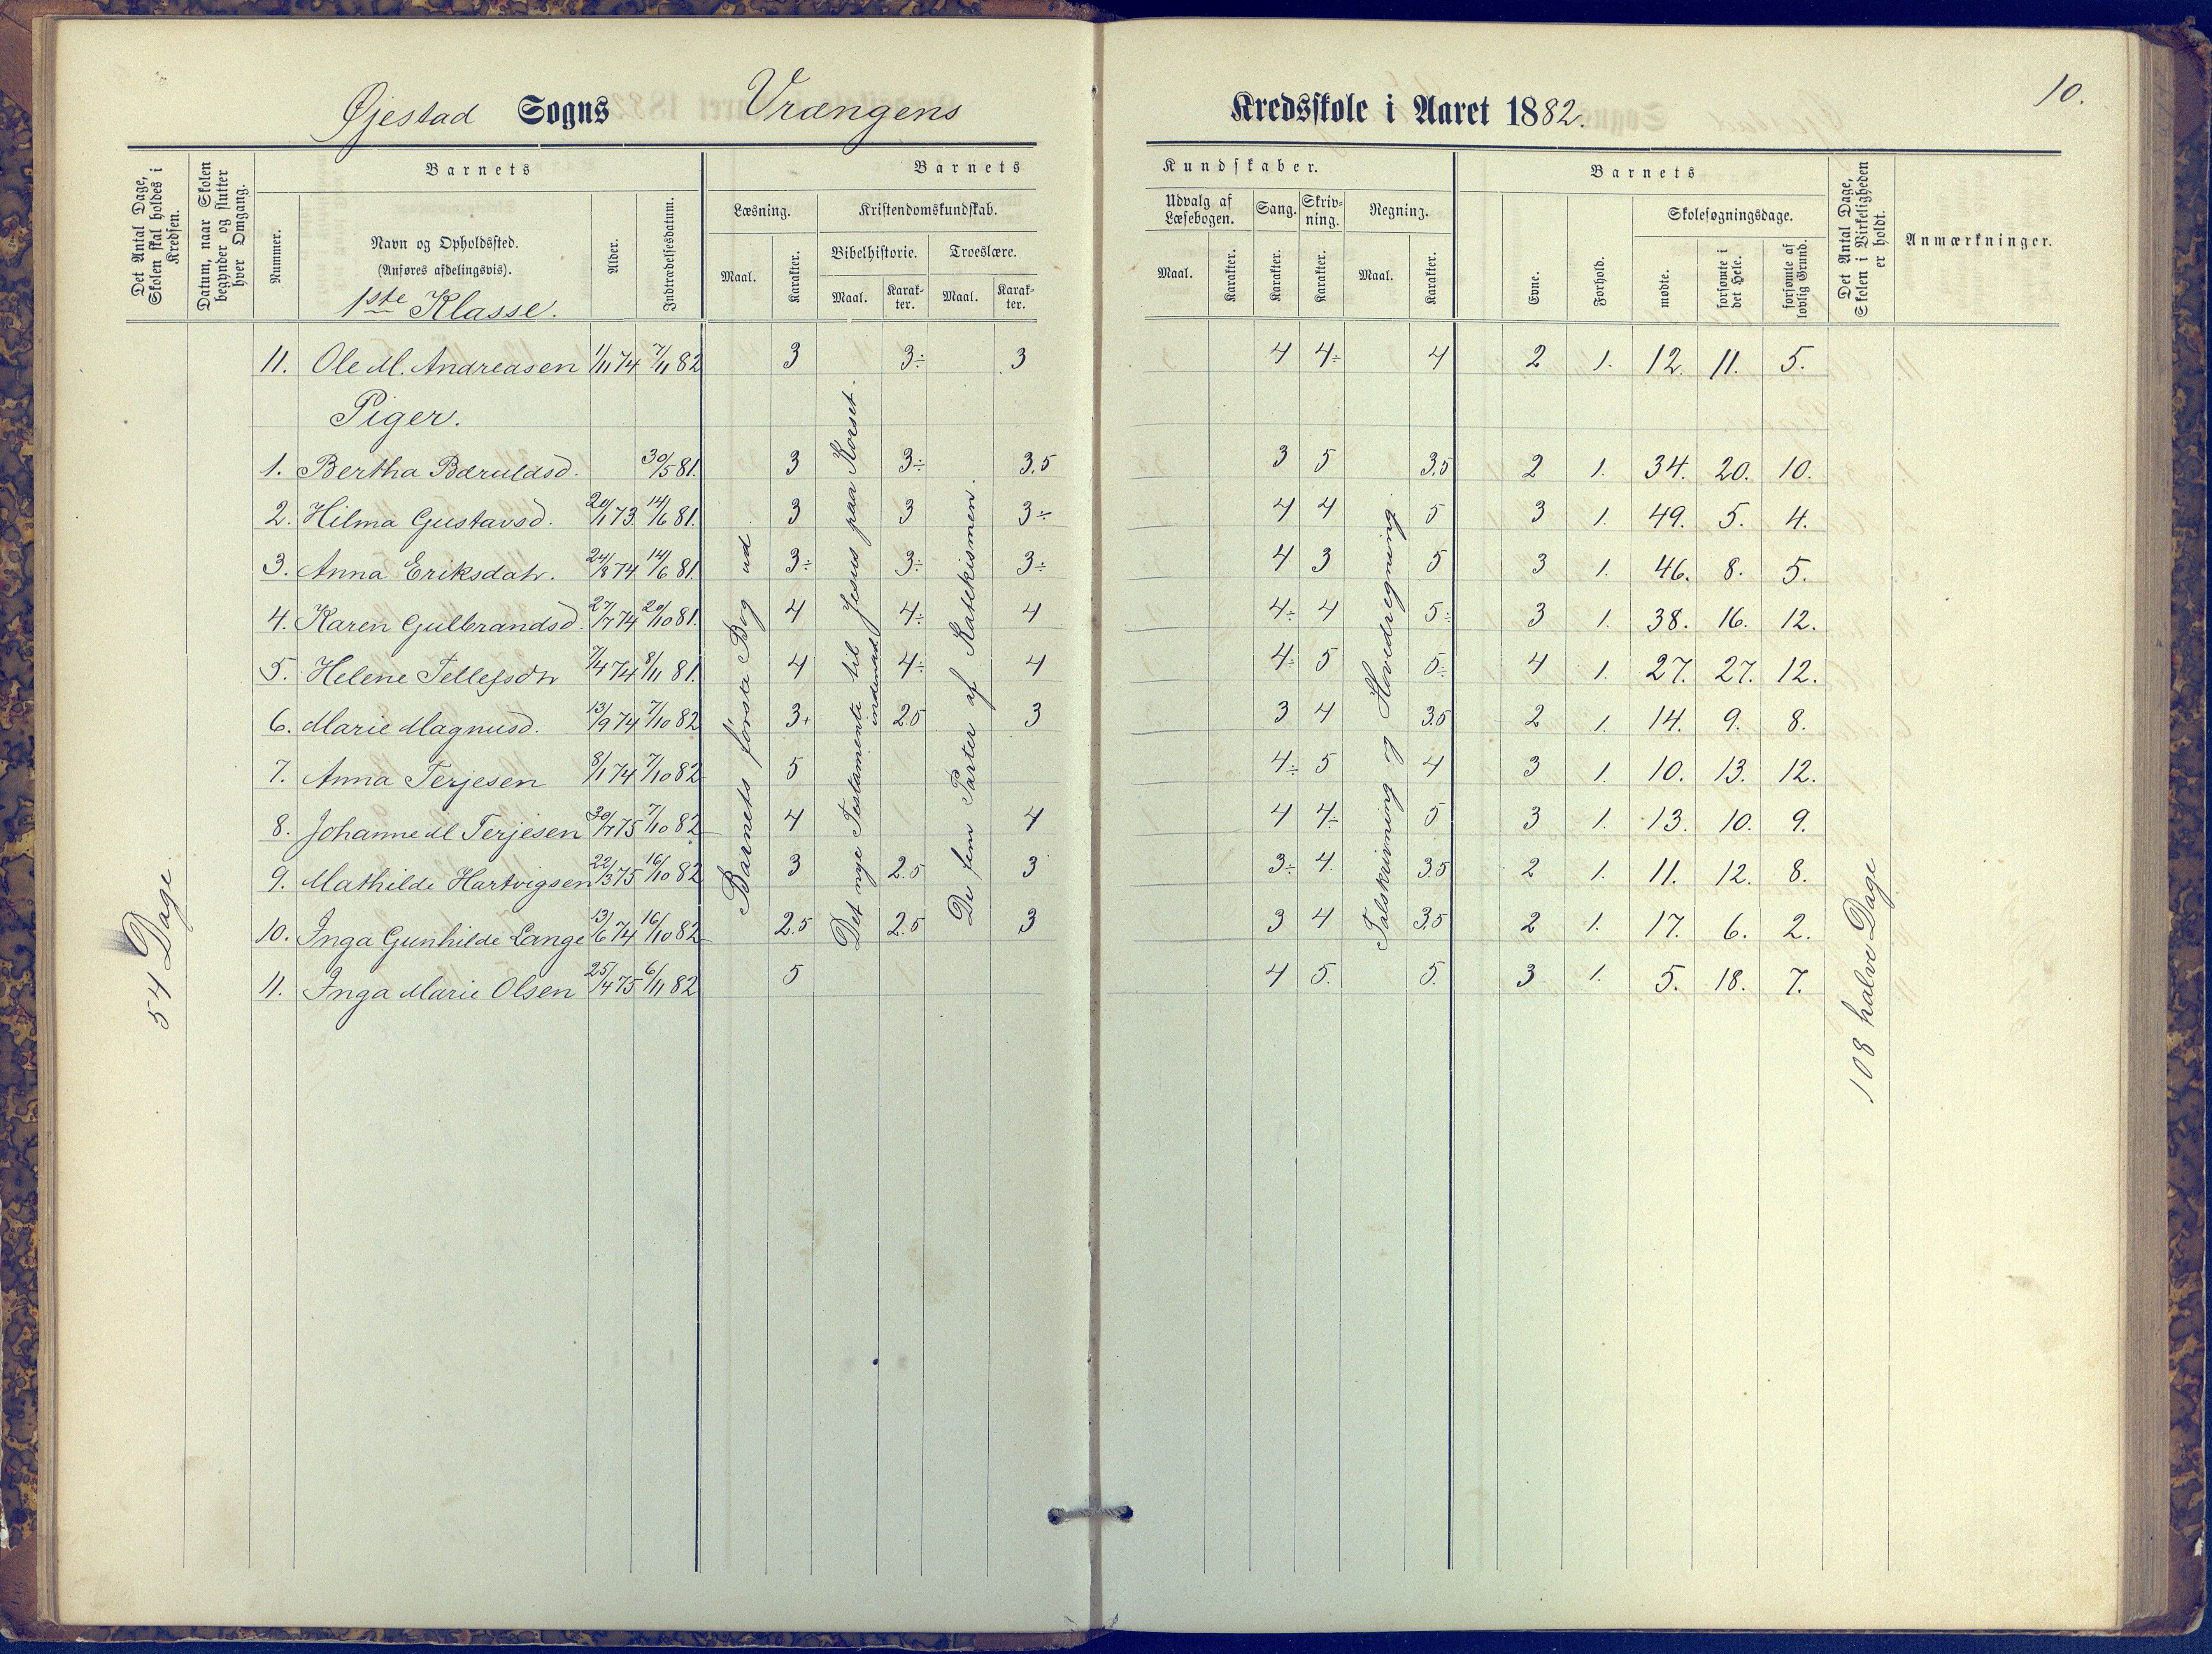 Øjestad Sogns Vrængens Kredsskole i Aaret 1882.
10.
Det Antal Dage, Skolen skal holdes i Kredsen.
Datum, naar Skolen begynder og slutter hver Omgang.
Barnets
Nummer.
Navn og Opholdssted.
(Anføres afdelingsvis).
1ste Klasse.
Alder.
Indtrædelsesdatum.
Barnets Kundskaber.
Læsning.
Maal.
Karakter.
Kristendomskundskab.
Bibelhistorie.
Maal.
Karakter.
Troeslære.
Maal.
Karakter.
Udvalg af Læsebogen.
Maal.
Karakter.
Sang.
Karakter.
Skrivning.
Karakter.
Regning.
Maal.
Karakter.
Barnets
Evne.
Forhold.
Skolesøgningsdage.
mødte.
forsømte i det Hele.
forsømte af lovlig Grund.
Det Antal Dage, Skolen i Virkeligheden er holdt.
Anmærkninger.
11. Ole M. Andreasen 1/11 74 7/11 82 3 3÷ 3 4 4÷ 4 2 1. 12. 11. 5.
Piger.
1. Bertha Bæruldsd. 30/5 81. 3 3÷ 3,5 3 5 3,5 2 1. 34. 20. 10.
2. Hilma Gustavsd. 20/1 73. 14/6 81. 3 3 3÷ 4 4 5 3 1. 49. 5. 4.
3. Anna Eriksdatr. 24/8 74 14/6 81. 3÷ 3÷ 3÷ 4 3 5 3 1. 46. 8. 5.
4. Karen Gulbrandsd. 27/7 74 20/10 81. 4 4÷ 4 4÷ 4 5÷ 3 1. 38. 16. 12.
5. Helene Tellefsdtr 7/4 74 8/11 81. 4 4÷ 4 4÷ 5 5÷ 4 1. 27. 27. 12.
6. Marie Magnusd. 13/9 74 7/10 82 3+ 2.5 3 3 4 3.5 2 1. 14. 9. 8.
7. Anna Terjesen 8/1 74 7/10 82 5 4÷ 5 4 3 1. 10. 13. 12.
8. Johanne M Terjesen 30/7 75 7/10 82 4 4 4 4÷ 5 3 1. 13. 10. 9.
9. Mathilde Hartvigsen 22/3 75 16/10 82 3 2.5 3 3÷ 4. 3.5 2 1. 11. 12. 8.
10. Inga Gunhilde Lange 13/6 74 16/10 82 2.5 2.5 3 3 4 3.5 2 1. 17. 6. 2.
11. Inga Marie Olsen 25/4 75 6/11 82 5 4 5. 5. 3 1. 5. 18. 7.
54 Dage
Barnets första Bog ud
Det nye Testamente til Jesus paa Korset.
indenad
De fem Parter af Katekismen.
Talskrivning og Hovedregning
108 halve Dage